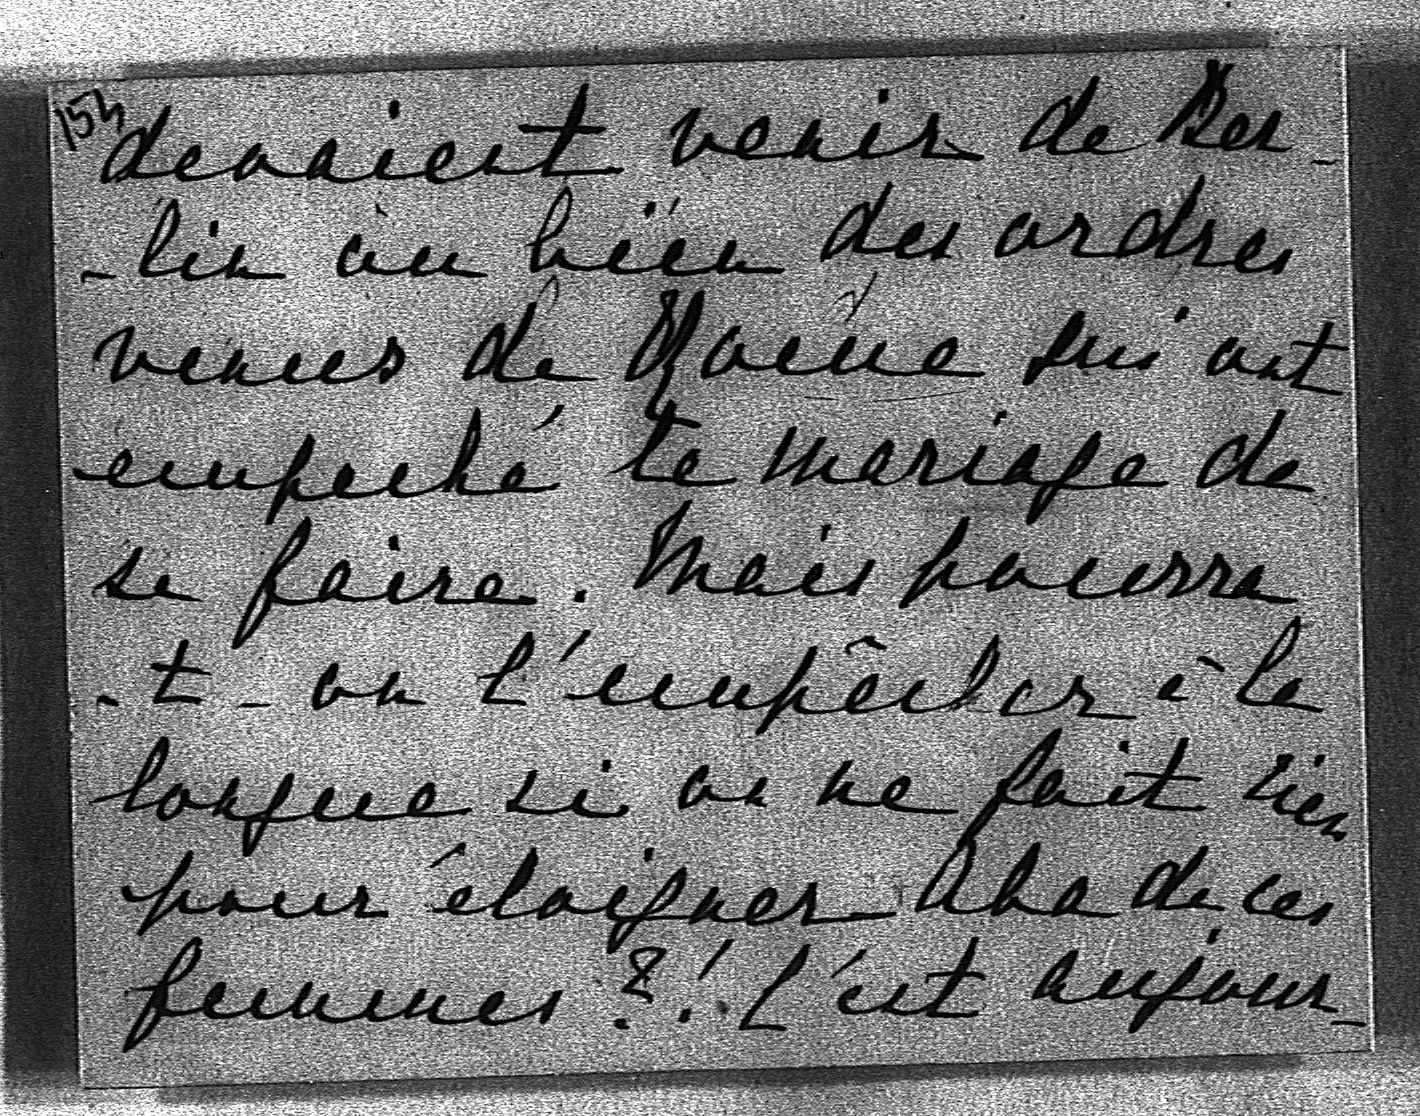 153
devaient venir de Ber-
-lin ou bien des ordres
venus de Vienne qui ont
empeché le mariage de
se faire. Mais pourra
-t-on l'empêcher à la
longue si on ne fait rien
pour éloigner Aba de ces
femmes ?! C'est aujour-